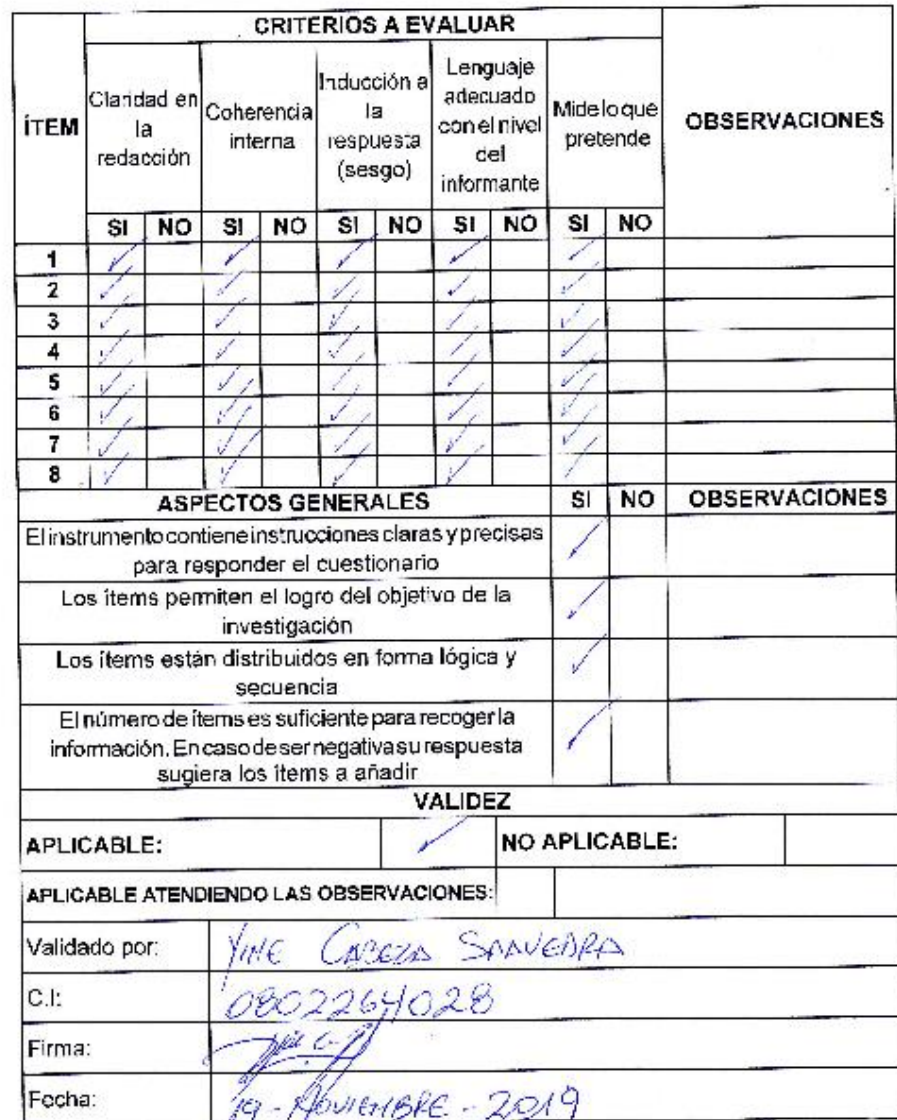 CRITERIOS A EVALUAR
ÍTEM
Claridad en
la
redacción
Coherencia
interna
Inducción a
la
respuesta
(sesgo)
Lenguaje
adecuado
con el nivel
del
informante
Mide lo que
pretende
OBSERVACIONES
SI NO SI NO SI NO SI NO SI NO
1 ✓ ✓ ✓ ✓ ✓
2 ✓ ✓ ✓ ✓ ✓
3 ✓ ✓ ✓ ✓ ✓
4 ✓ ✓ ✓ ✓ ✓
5 ✓ ✓ ✓ ✓ ✓
6 ✓ ✓ ✓ ✓ ✓
7 ✓ ✓ ✓ ✓ ✓
8 ✓ ✓ ✓ ✓ ✓
ASPECTOS GENERALES SI NO OBSERVACIONES
El instrumento contiene instrucciones claras y precisas
para responder el cuestionario ✓
Los ítems permiten el logro del objetivo de la
investigación ✓
Los ítems están distribuidos en forma lógica y
secuencia ✓
El número de ítems es suficiente para recoger la
información. En caso de ser negativa su respuesta
sugiera los ítems a añadir ✓
VALIDEZ
APLICABLE: ✓ NO APLICABLE:
APLICABLE ATENDIENDO LAS OBSERVACIONES:
Validado por: YINE CABEZA SAAVEDRA
C.I: 0802264028
Firma:
Fecha: 19 - NOVIEMBRE - 2019